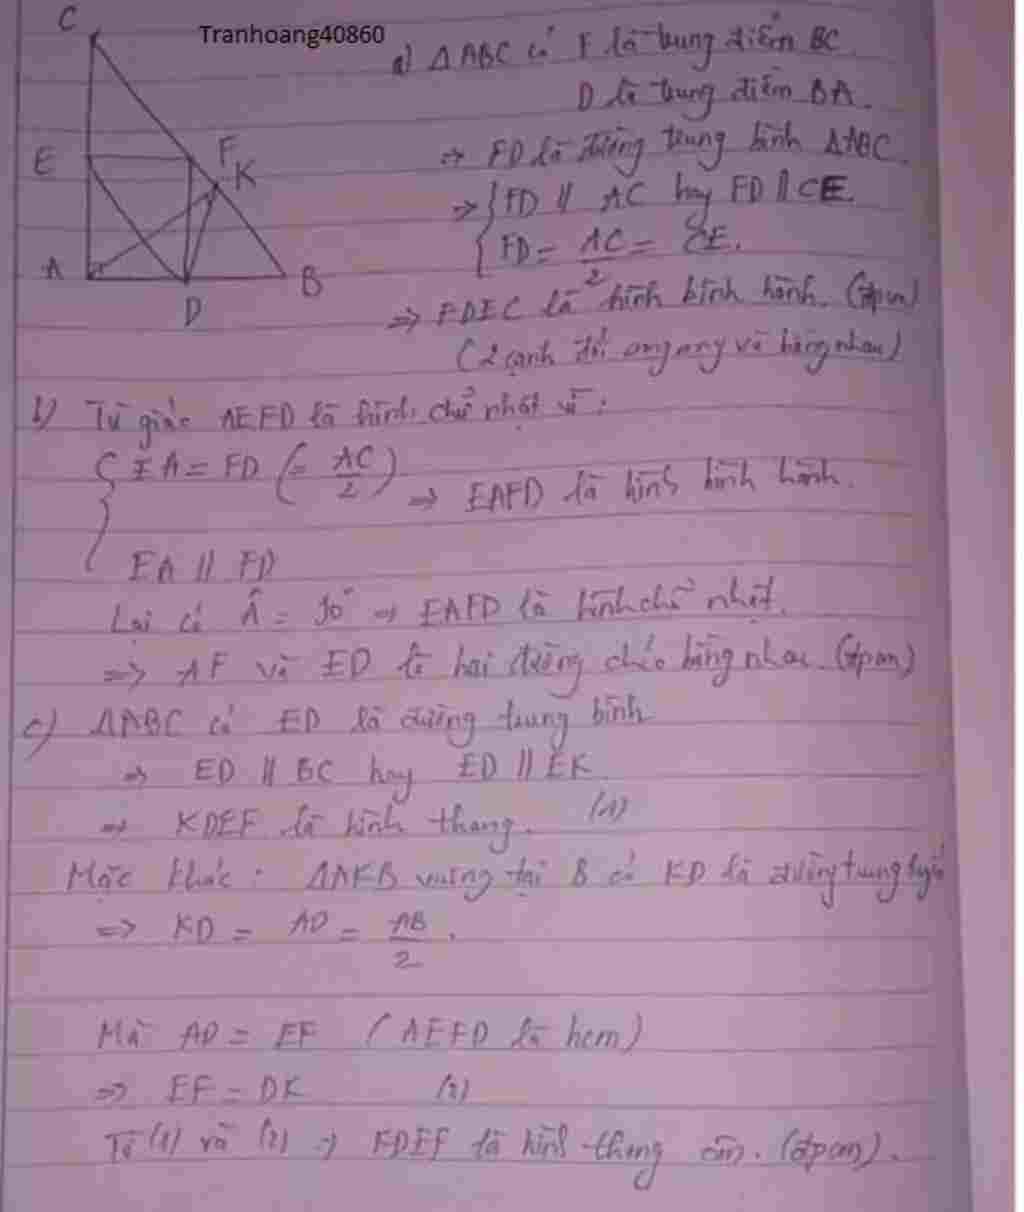 Tranhoang40860
C
E
F
K
A
D
B
a) Δ ABC có F là trung điểm BC
D là trung điểm BA.
⇒ FD là đường trung bình ΔABC.
⇒ { FD // AC hay FD // CE.
{ FD = AC/2 = CE.
⇒ FDEC là hình bình hành. (đpcm)
(2 cạnh đối song song và bằng nhau)
b) Tứ giác AEFD là hình chữ nhật vì:
{ EA = FD (= AC/2) ⇒ EAFD là hình bình hành.
EA // FD
Lại có Â = 90° ⇒ EAFD là hình chữ nhật.
⇒ AF và ED là hai đường chéo bằng nhau. (đpcm)
c) ΔABC có ED là đường trung bình
⇒ ED // BC hay ED // FK
⇒ KDEF là hình thang. (1)
Mặc khác: ΔAKB vuông tại B có KD là đường trung tuyến
⇒ KD = AD = AB/2.
Mà AD = EF (AEFD là hcm)
⇒ EF = DK (2)
Từ (1) và (2) ⇒ FDEF là hình thang cân. (đpcm).